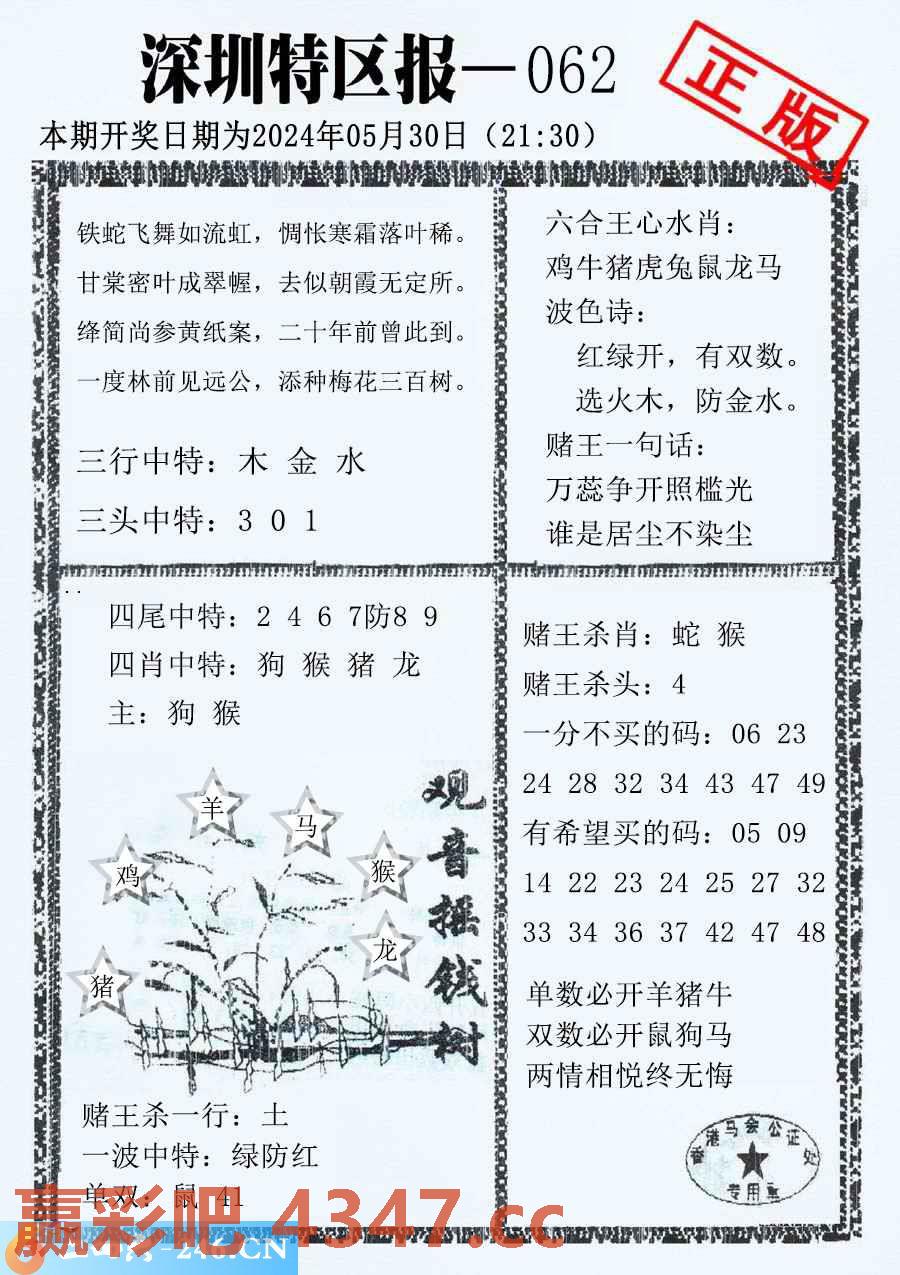 深圳特区报—062
正版
本期开奖日期为2024年05月30日（21:30）
铁蛇飞舞如流虹，惆怅寒霜落叶稀。
甘棠密叶成翠幄，去似朝霞无定所。
绛简尚参黄纸案，二十年前曾此到。
一度林前见远公，添种梅花三百树。
三行中特：木 金 水
三头中特：3 0 1
六合王心水肖：
鸡牛猪虎兔鼠龙马
波色诗：
红绿开，有双数。
选火木，防金水。
赌王一句话：
万蕊争开照槛光
谁是居尘不染尘
四尾中特：2 4 6 7防8 9
四肖中特：狗 猴 猪 龙
主：狗 猴
羊
马
鸡
猴
龙
猪
观音摇钱树
赌王杀一行：土
一波中特：绿防红
单双：鼠 41
赌王杀肖：蛇 猴
赌王杀头：4
一分不买的码：06 23
24 28 32 34 43 47 49
有希望买的码：05 09
14 22 23 24 25 27 32
33 34 36 37 42 47 48
单数必开羊猪牛
双数必开鼠狗马
两情相悦终无悔
香港马会公证处
专用章
赢彩吧 4347.cc
-246.CN